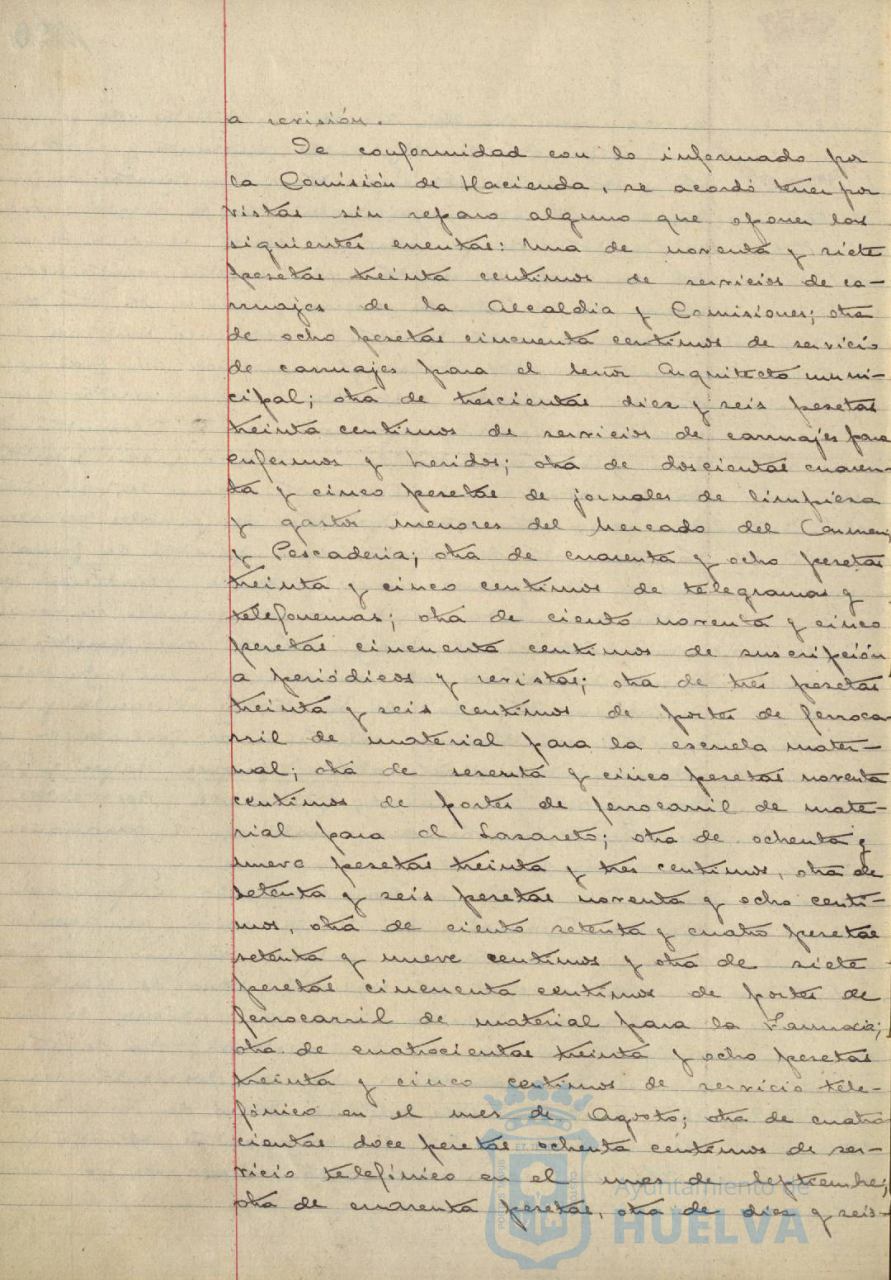 a revisión.
De conformidad con lo informado por
la Comisión de Hacienda, se acordó tener por
vistas sin reparo alguno que oponer las
siguientes cuentas: Una de noventa y siete
pesetas treinta centimos de servicios de ca-
rruajes de la Alcaldia y Comisiones; otra
de ocho pesetas cincuenta centimos de servicio
de carruajes para el Señor Arquitecto muni-
cipal; otra de trescientas diez y seis pesetas
treinta centimos de servicios de carruajes para
enfermos y heridos; otra de doscientas cuaren-
ta y cinco pesetas de jornales de limpieza
y gastos menores del Mercado del Carmen
y Pescaderia; otra de cuarenta y ocho pesetas
treinta y cinco centimos de telegramas y
telefonemas; otra de ciento noventa y cinco
pesetas cincuenta centimos de suscripción
a periódicos y revistas; otra de tres pesetas
treinta y seis centimos de portes de ferroca-
rril de material para la escuela mater-
nal; otra de sesenta y cinco pesetas noventa
centimos de portes de ferrocarril de mate-
rial para el Lazareto; otra de ochenta y
nueve pesetas treinta y tres centimos, otra de
setenta y seis pesetas noventa y ocho centi-
mos, otra de ciento setenta y cuatro pesetas
setenta y nueve centimos y otra de siete
pesetas cincuenta centimos de portes de
ferrocarril de material para la Farmacia;
otra de cuatrocientas treinta y ocho pesetas
treinta y cinco centimos de servicio tele-
fónico en el mes de Agosto; otra de cuatro
cientas doce pesetas ochenta centimos de ser-
vicio telefónico en el mes de Septiembre;
otra de cuarenta pesetas, otra de diez y seis
Ayuntamiento de
HUELVA